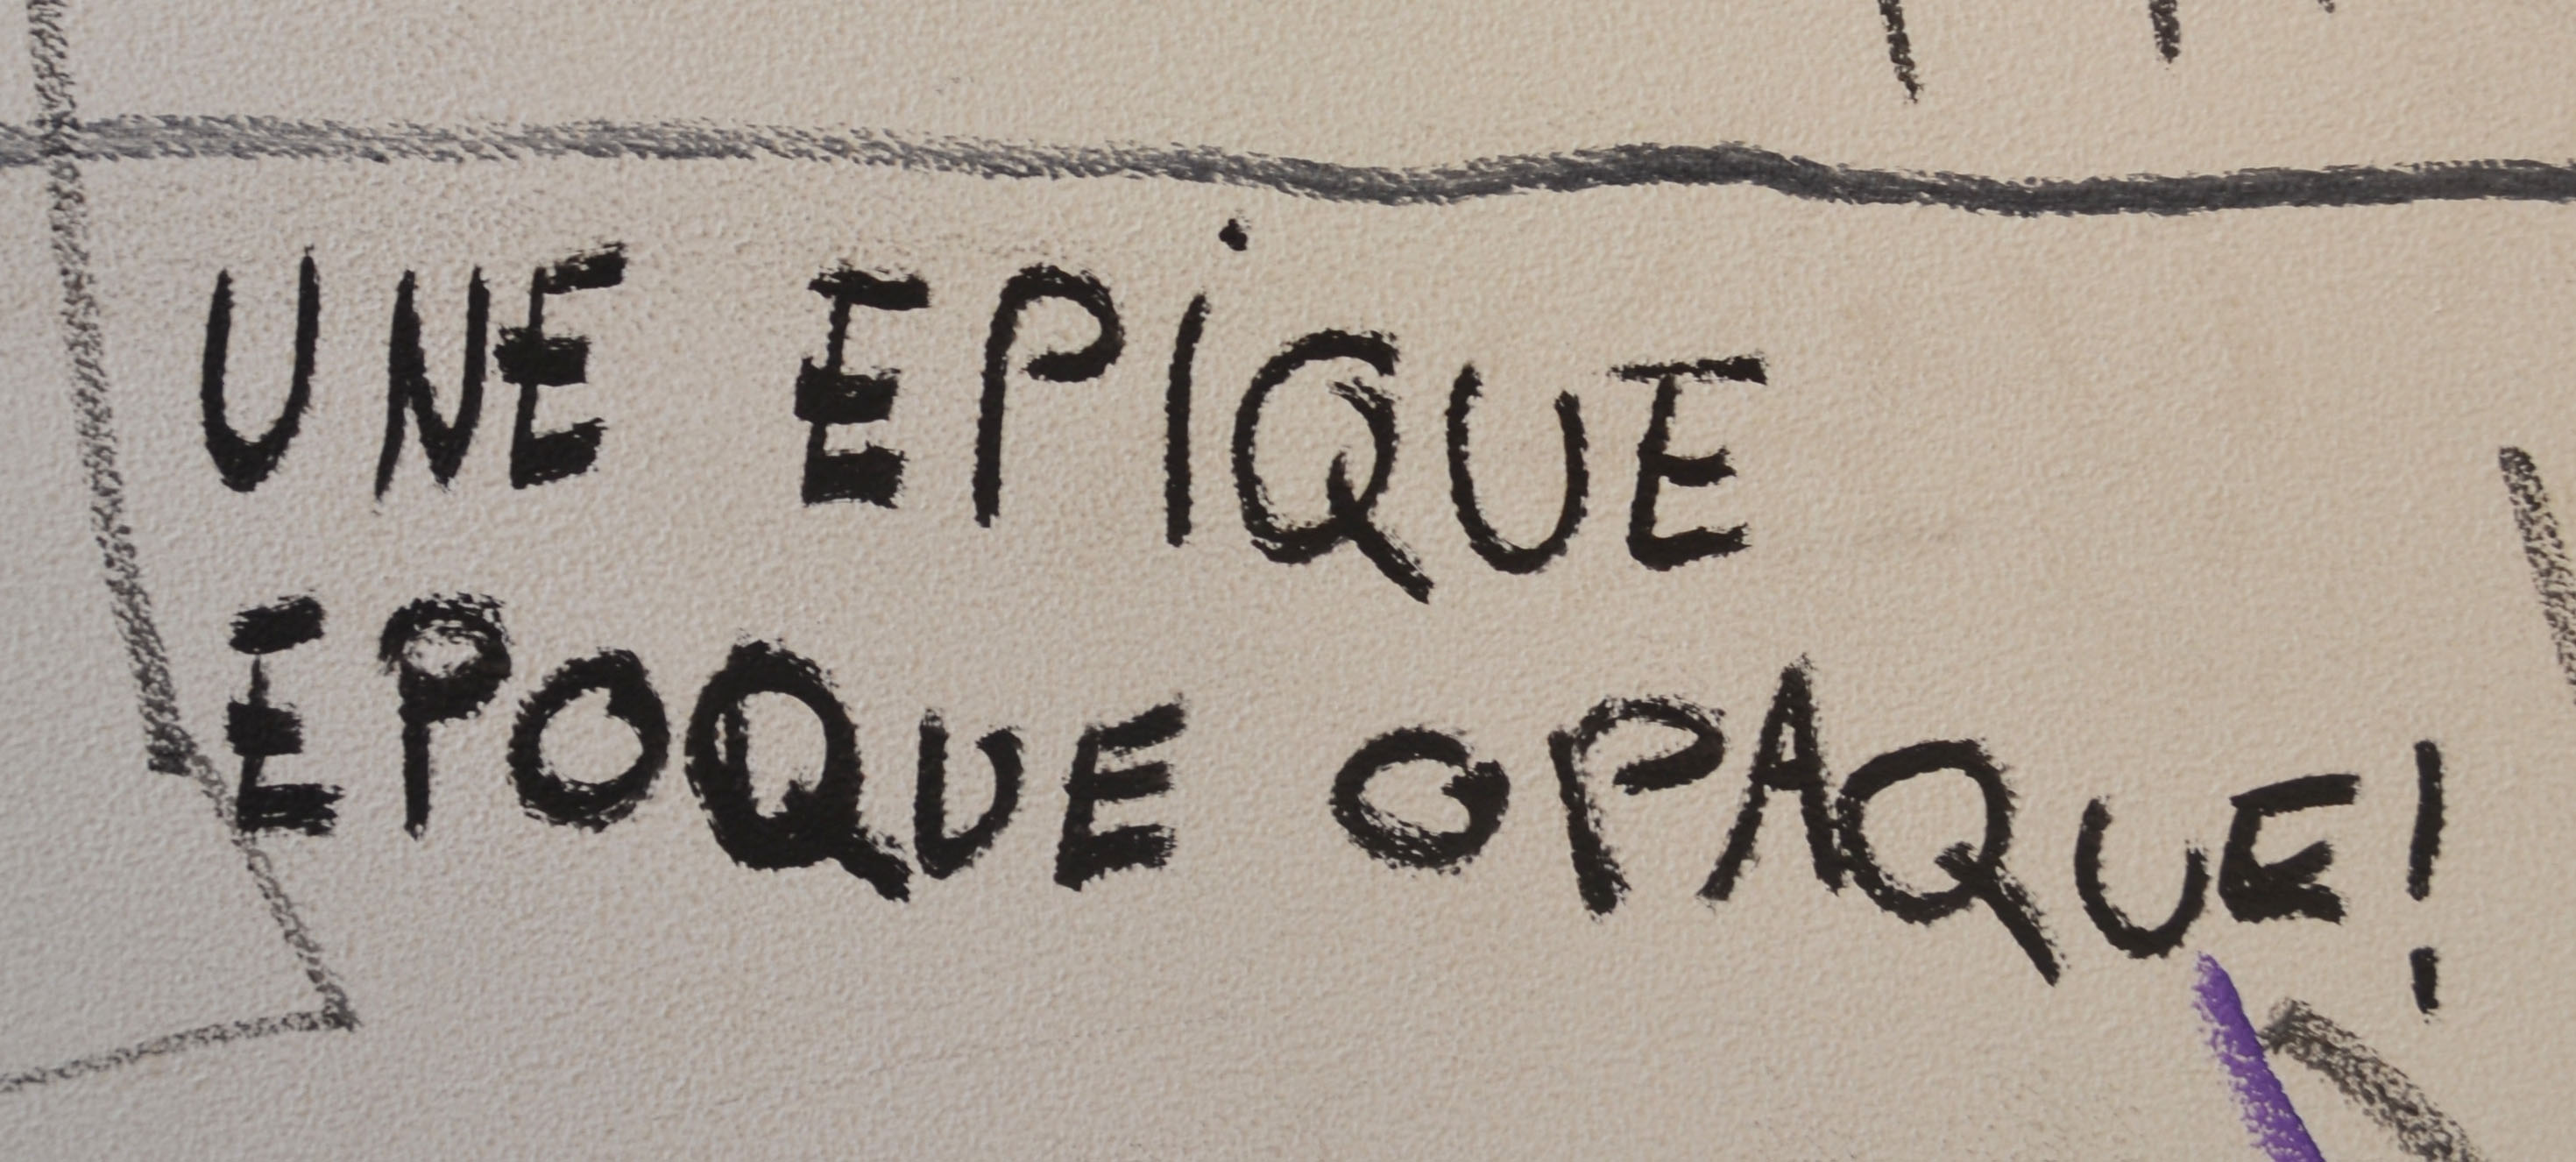 UNE EPiQUE
EPOQUE OPAQUE!